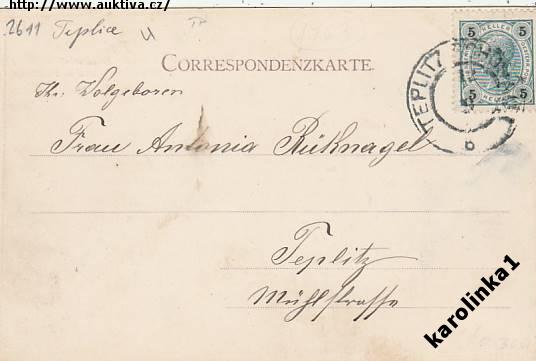 http://www.auktiva.cz/
2611 Teplice
CORRESPONDENZKARTE.
Ihr. Wolgeboren
Frau Antonia Rüknagel
Teplitz
Mühlstrasse
5 HELLER 5
5 5
TEPLITZ
b
karolinka1